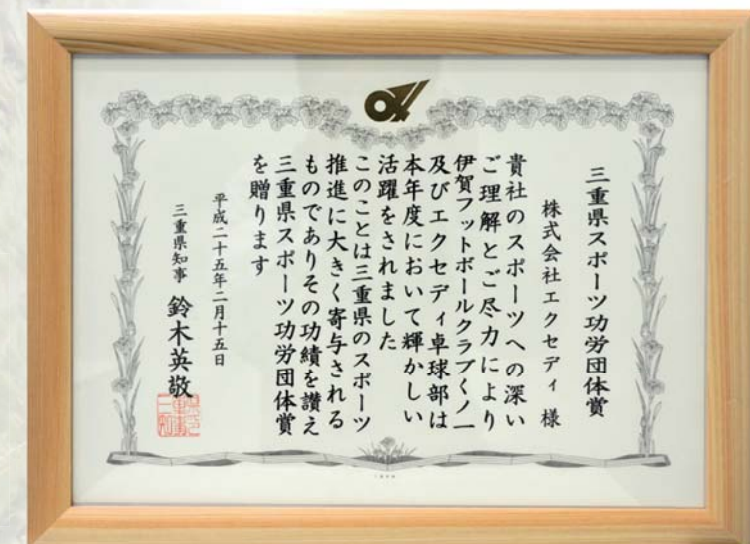 三重県スポーツ功労団体賞
株式会社エクセディ 様
貴社のスポーツへの深い
ご理解とご尽力により
伊賀フットボールクラブくノ一
及びエクセディ卓球部は
本年度において輝かしい
活躍をされました
このことは三重県のスポーツ
推進に大きく寄与される
ものでありその功績を讃え
三重県スポーツ功労団体賞
を贈ります
平成二十五年二月十五日
三重県知事 鈴木英敬